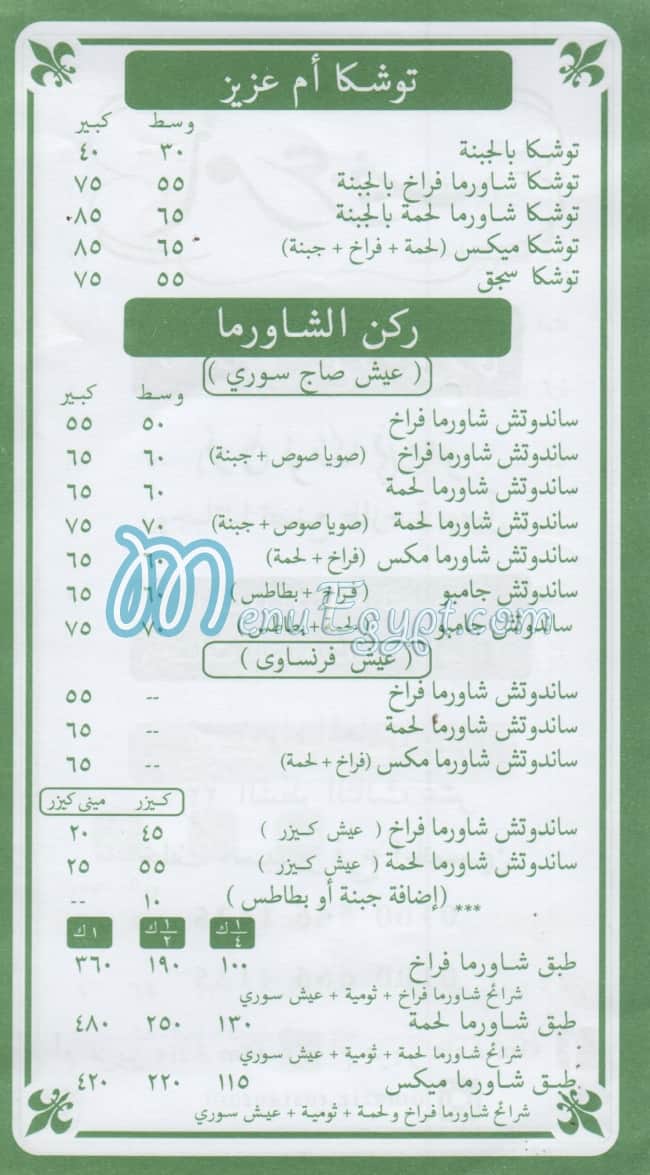 توشكا أم عزيز
وسط كبير
توشكا بالجبنة ٣٠ ٤٠
توشكا شاورما فراخ بالجبنة ٥٥ ٧٥
توشكا شاورما لحمة بالجبنة ٦٥ ٨٥
توشكا ميكس (لحمة + فراخ + جبنة) ٦٥ ٨٥
توشكا سجق ٥٥ ٧٥
ركن الشاورما
( عيش صاج سوري )
وسط كبير
ساندوتش شاورما فراخ ٥٠ ٥٥
ساندوتش شاورما فراخ (صويا صوص + جبنة) ٦٠ ٦٥
ساندوتش شاورما لحمة ٦٠ ٦٥
ساندوتش شاورما لحمة (صويا صوص + جبنة) ٧٠ ٧٥
ساندوتش شاورما مكس (فراخ + لحمة) ٦٠ ٦٥
ساندوتش جامبو (فراخ + بطاطس) ٦٠ ٦٥
ساندوتش جامبو (لحمة + بطاطس) ٧٠ ٧٥
MenuEgypt.com
( عيش فرنساوى )
ساندوتش شاورما فراخ -- ٥٥
ساندوتش شاورما لحمة -- ٦٥
ساندوتش شاورما مكس (فراخ + لحمة) -- ٦٥
كيزر مينى كيزر
ساندوتش شاورما فراخ ( عيش كيزر ) ٤٥ ٢٠
ساندوتش شاورما لحمة ( عيش كيزر ) ٥٥ ٢٥
*** (إضافة جبنة أو بطاطس ) ١٠ --
١/٤ ك ١/٢ ك ١ ك
طبق شاورما فراخ ١٠٠ ١٩٠ ٣٦٠
شرائح شاورما فراخ + ثومية + عيش سوري
طبق شاورما لحمة ١٣٠ ٢٥٠ ٤٨٠
شرائح شاورما لحمة + ثومية + عيش سوري
طبق شاورما ميكس ١١٥ ٢٢٠ ٤٢٠
شرائح شاورما فراخ ولحمة + ثومية + عيش سوري